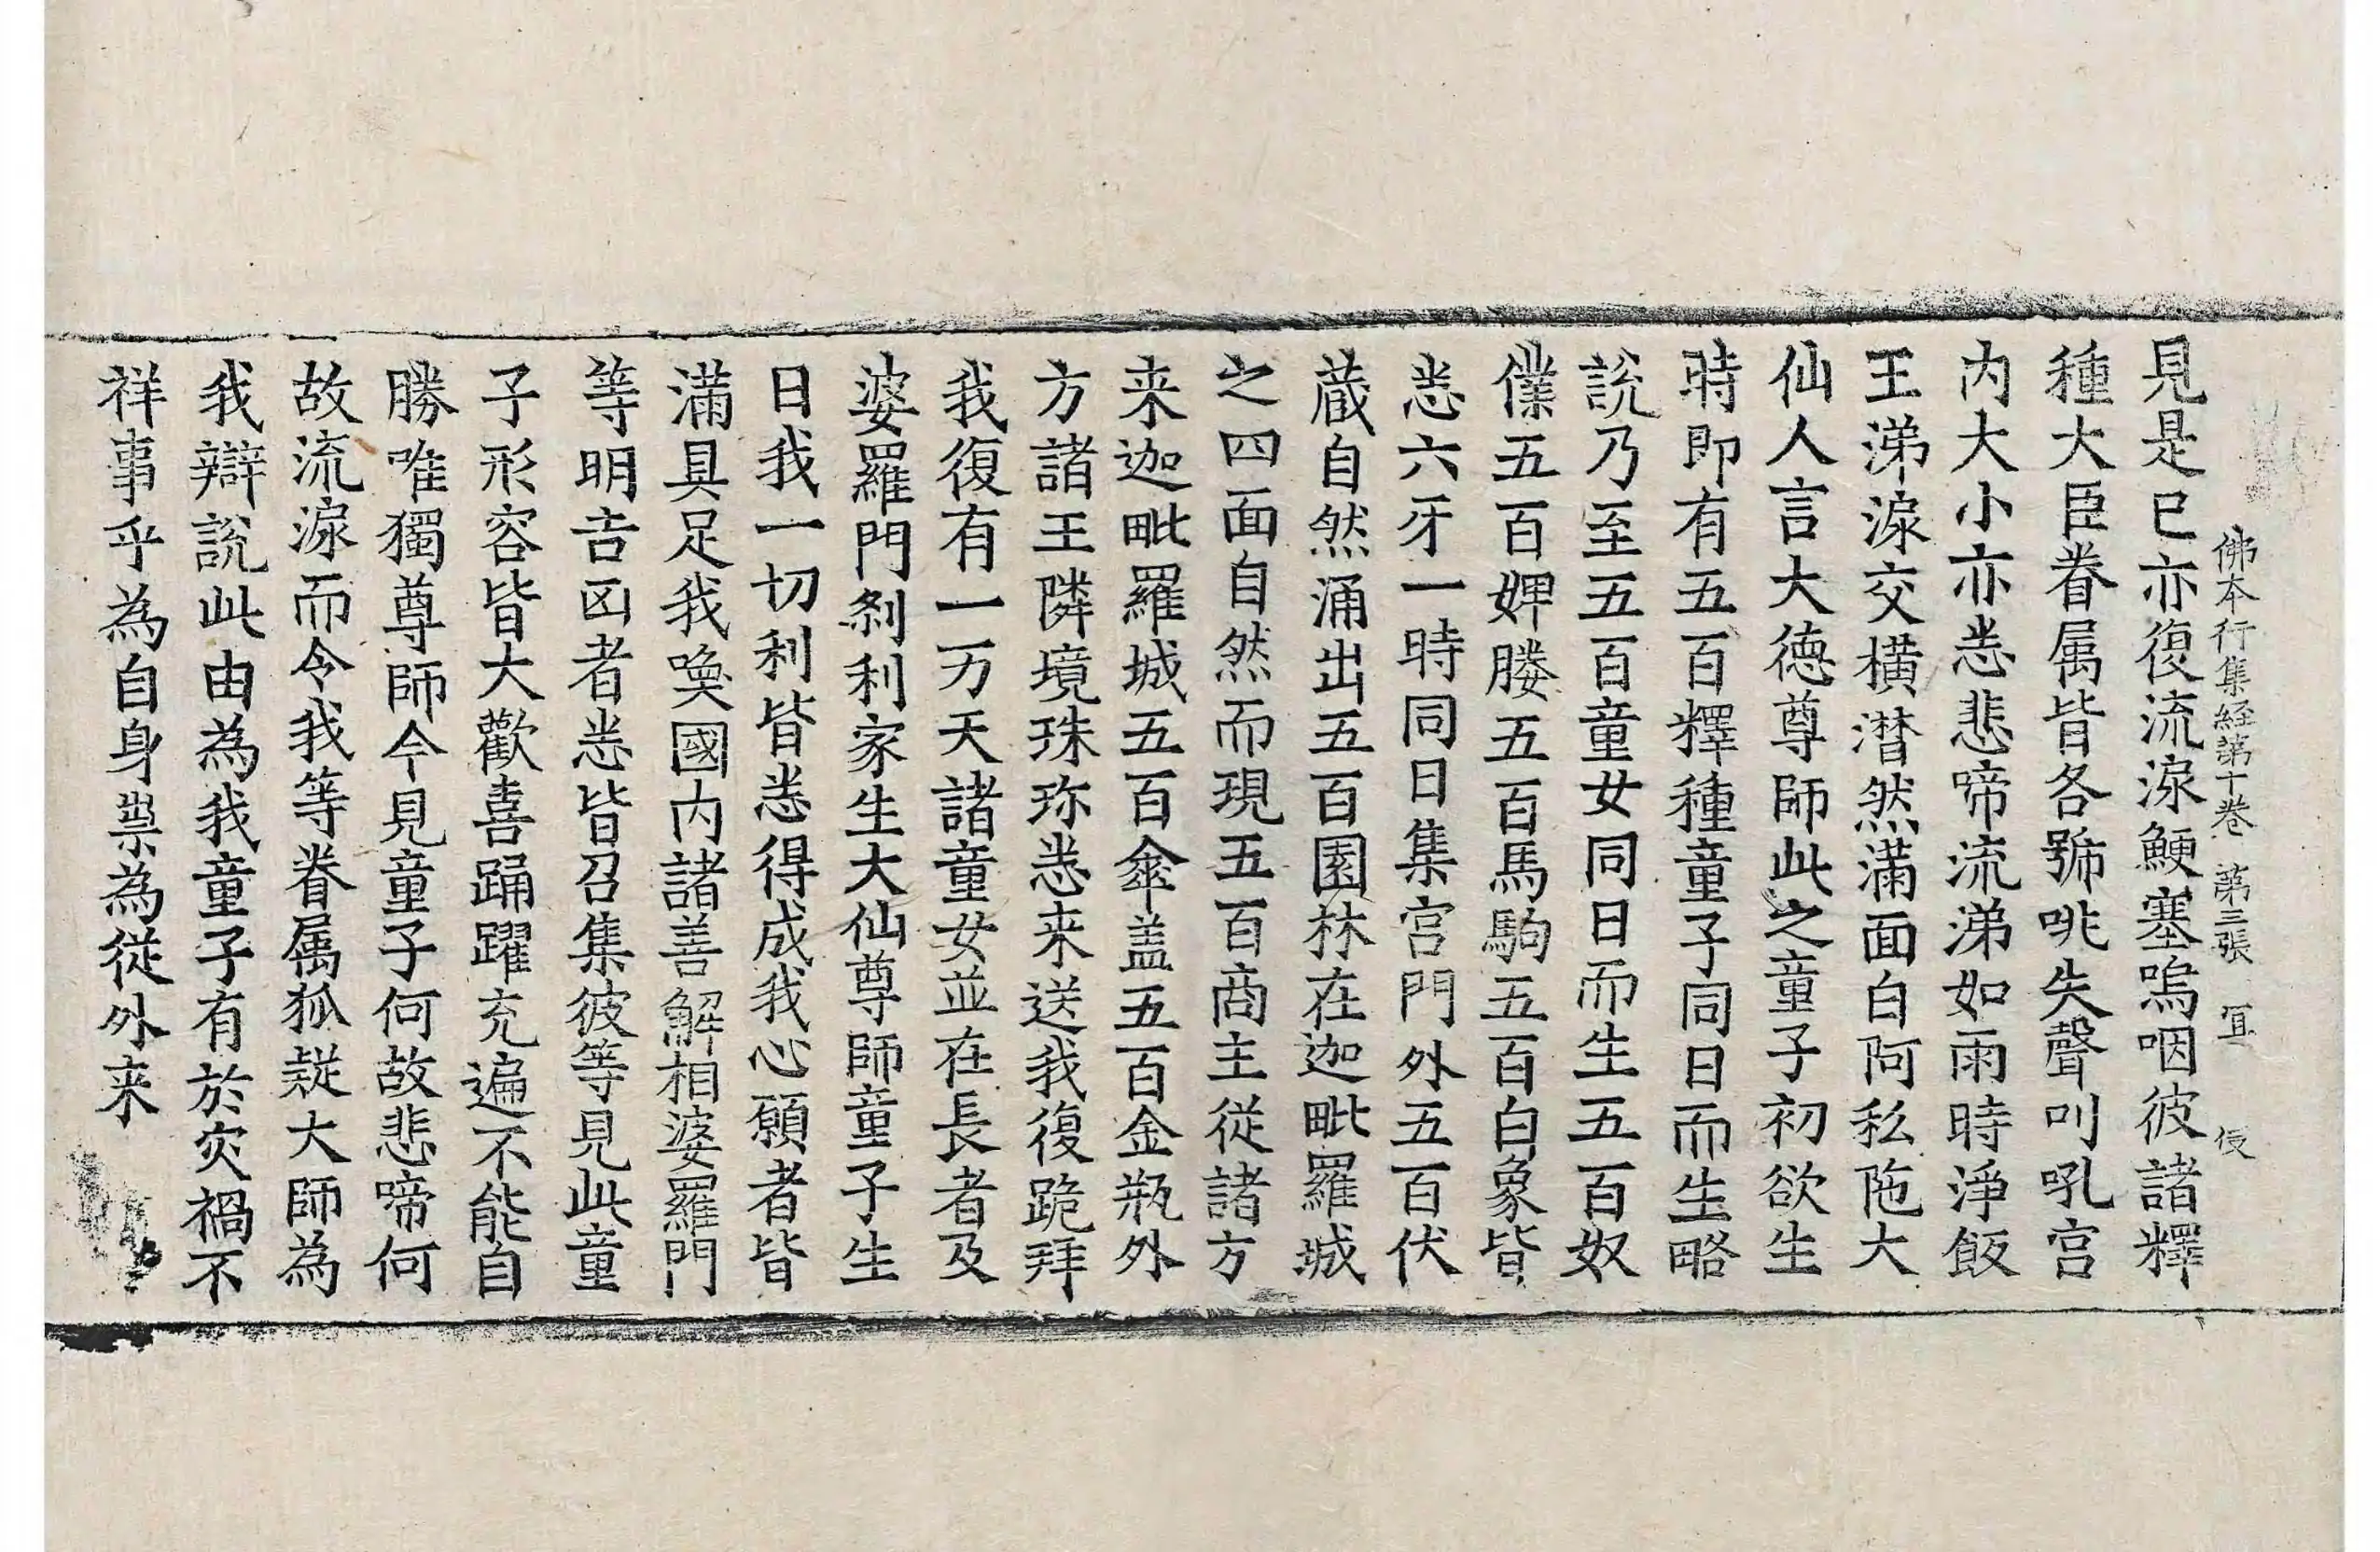 佛本行集経第十卷 第三張 冝
見是已亦復流淚鯁塞嗚咽彼諸釋
種大臣眷属皆各號咷失聲叫吼宫
内大小亦悉悲啼流涕如雨時淨飯
王涕淚交横潸然滿面白阿私陁大
仙人言大德尊師此之童子初欲生
時即有五百釋種童子同日而生略
說乃至五百童女同日而生五百奴
僕五百婢媵五百馬駒五百白象皆
悉六牙一時同日集宫門外五百伏
蔵自然涌出五百園林在迦毗羅城
之四面自然而現五百商主従諸方
来迦毗羅城五百傘盖五百金瓶外
方諸王隣境珠珎悉来送我復跪拜
我復有一万天諸童女並在長者及
婆羅門刹利家生大仙尊師童子生
日我一切利皆悉得成我心願者皆
滿具足我喚國内諸善解相婆羅門
等明吉凶者悉皆召集彼等見此童
子形容皆大歡喜踊躍充遍不能自
勝唯獨尊師今見童子何故悲啼何
故流淚而令我等眷属狐疑大師為
我辯說此由為我童子有於灾禍不
祥事乎為自身祟為從外来